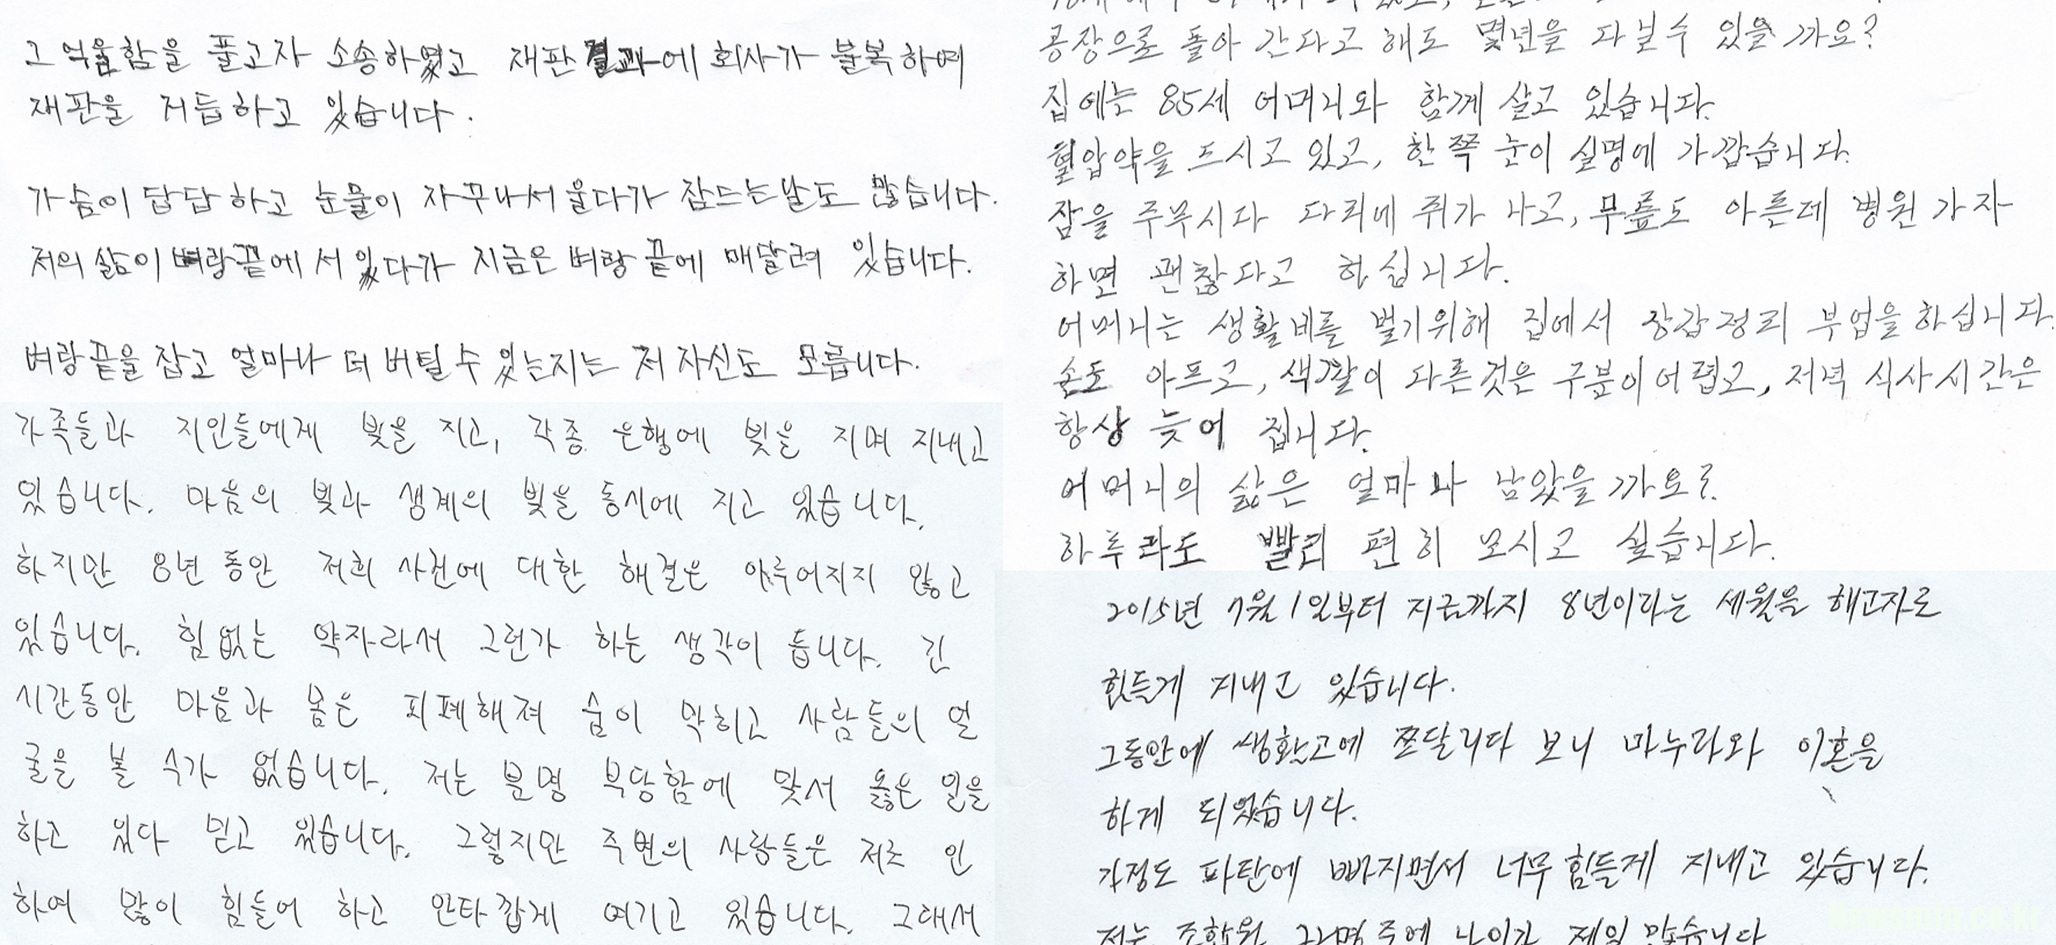 그 억울함을 풀고자 소송하였고 재판 결과에 회사가 불복하여
재판을 거듭하고 있습니다.
가슴이 답답하고 눈물이 자꾸나서 울다가 잠드는날도 많습니다.
저의 삶이 벼랑끝에 서 있다가 지금은 벼랑 끝에 매달려 있습니다.
벼랑끝을 잡고 얼마나 더 버틸수 있는지는 저 자신도 모릅니다.
가족들과 지인들에게 빚을 지고, 각종 은행에 빚을 지며 지내고
있습니다. 마음의 빚과 생계의 빚을 동시에 지고 있습니다.
하지만 8년 동안 저희 사건에 대한 해결은 이루어지지 않고
있습니다. 힘없는 약자라서 그런가 하는 생각이 듭니다. 긴
시간동안 마음과 몸은 피폐해져 숨이 막히고 사람들의 얼
굴을 볼 수가 없습니다. 저는 분명 부당함에 맞서 옳은 일을
하고 있다 믿고 있습니다. 그렇지만 주변의 사람들은 저로 인
하여 많이 힘들어 하고 안타깝게 여기고 있습니다. 그래서
공장으로 돌아 간다고 해도 몇년을 다닐수 있을까요?
집에는 85세 어머니와 함께 살고 있습니다.
혈압약을 드시고 있고, 한쪽 눈이 실명에 가깝습니다.
잠을 주무시다 다리에 쥐가 나고, 무릎도 아픈데 병원 가자
하면 괜찮다고 하십니다.
어머니는 생활비를 벌기위해 집에서 장갑정리 부업을하십니다.
손도 아프고, 색깔이 다른것은 구분이어렵고, 저녁 식사시간은
항상 늦어 집니다.
어머니의 삶은 얼마나 남았을까요?
하루라도 빨리 편히 모시고 싶습니다.
2015년 7월 1일부터 지금까지 8년이라는 세월을 해고자로
힘들게 지내고 있습니다.
그동안에 생활고에 쪼달리다 보니 마누라와 이혼을
하게 되었습니다.
가정도 파탄에 빠지면서 너무 힘들게 지내고 있습니다.
저는 조합원 그중에 나이가 제일 많습니다